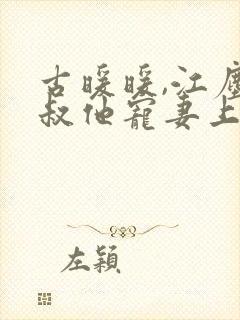 古暖暖,江塵
叔他寵妻上
左穎